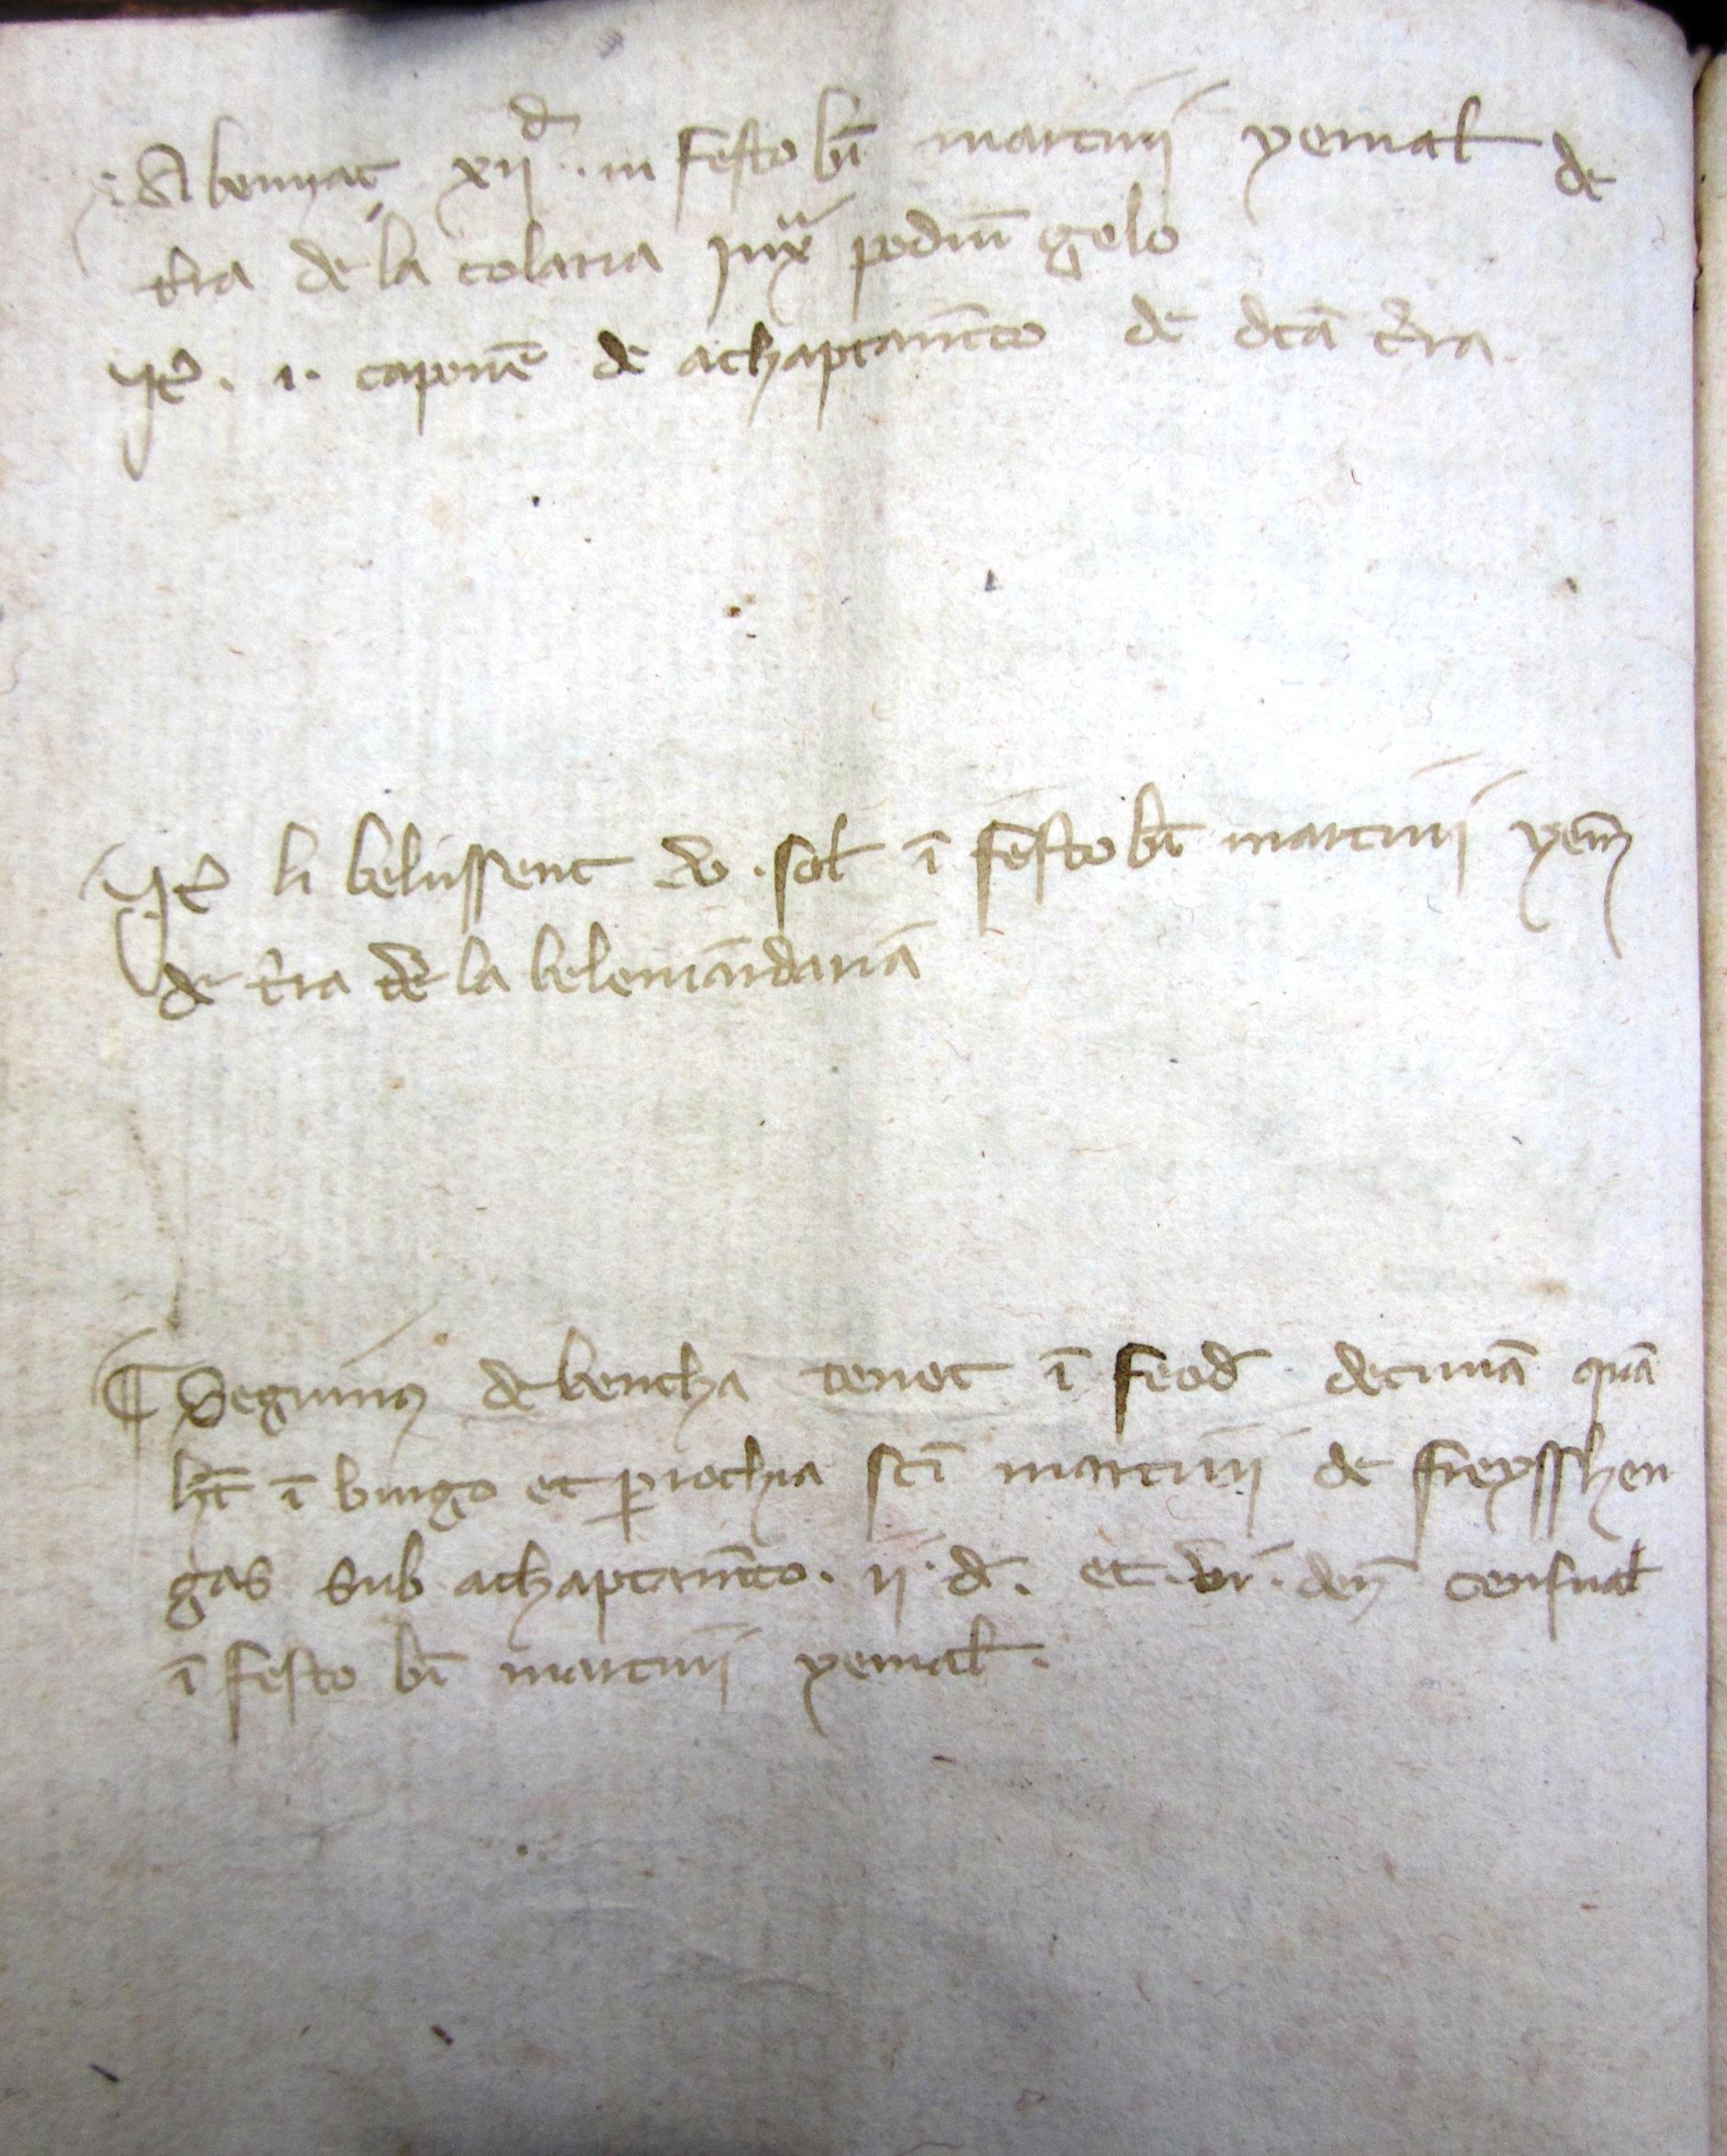 A benyac xii d. in festo bi martinii yemal de
tra de la colaria jux podiu gelo
Ite . i . caponē de achaptamēto de dcā tra .
Ite li belussent v . sol ī festo bi martinii yem
de tra de la belemādariā
¶ Seguinus de bencha tenet ī feod decimā quā
ht ī burgo et prochia sci martinii de freysshen
gas sub achaptamēto . ii . d . et . vi . den censual
ī festo bi martinii yemal .